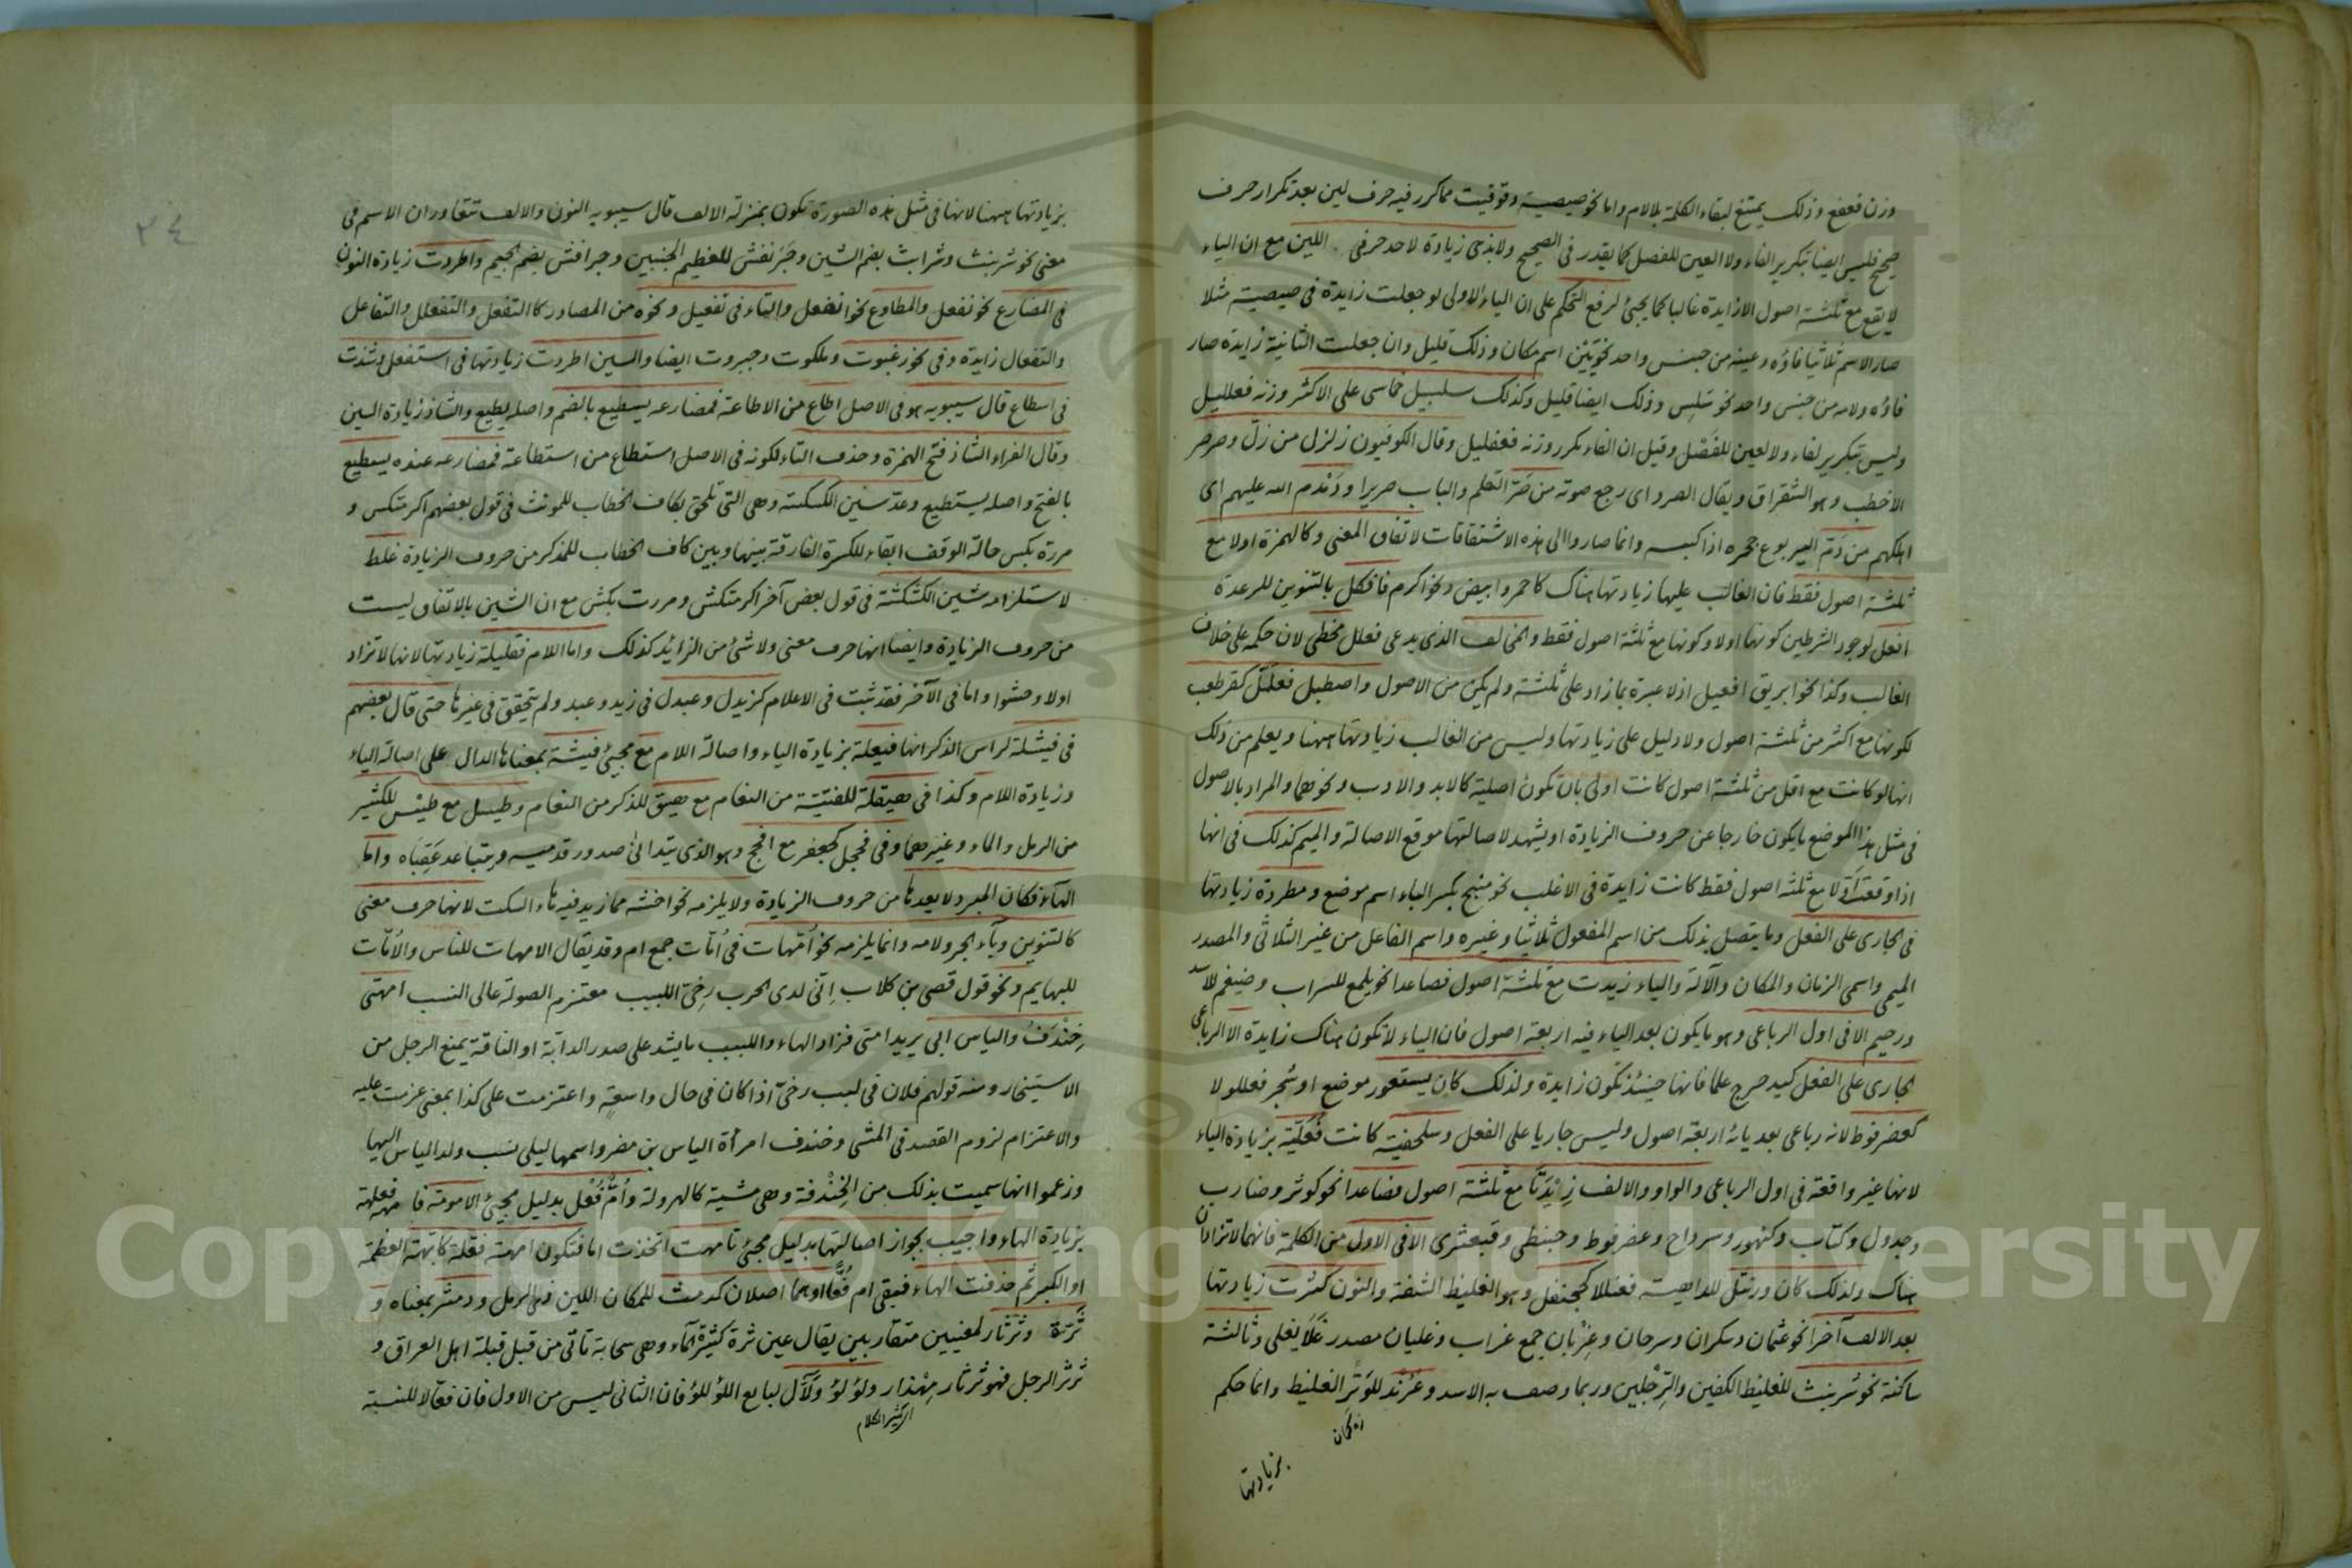 وزن فعفع وذلك يمتنع لبقاء الكلمة بلا لام واما نحو صيصية وقوقيت مما كرر فيه حرف لين بعد تكرار حرف
صحيح فليس ايضا بتكرير الفاء ولا العين للفصل كما يقدر في الصحيح ولا بذي زيادة لاحد حرفي اللين مع ان الياء
لا يقع مع ثلثة اصول الا زايدة غالبا كما يجئ لرفع التحكم على ان الياء الاولى لو جعلت زايدة في صيصية مثلا
صار الاسم ثلاثيا فاؤه وعينه من جنس واحد نحو يَيَن اسم مكان وذلك قليل وان جعلت الثانية زايدة صار
فاؤه ولامه من جنس واحد نحو سَلِس وذلك ايضا قليل وكذلك سلسبيل خماسى على الاكثر وزنه فعلليل
وليس بتكرير لفاء ولا لعين للفَصْل وقيل ان الفاء مكرر وزنه فعفليل وقال الكوفيون زلزل من زلّ وصرصر
الاخطب وهو الشقراق ويقال الصرد اى رجع صوته من صَرّ القلم والباب صريرا ودَمْدم الله عليهم اى
اهلكهم من دَمّ اليربوع جحره اذا كبسه وانما صاروا الى هذه الاشتقاقات لاتفاق المعنى وكالهمزة اولا مع
ثلثة اصول فقط فان الغالب عليها زيادتها هناك كاحمر وابيض ونحو اكرم فافكل بالتنوين للرعدة
افعل لوجود الشرطين كونها اولا وكونها مع ثلثة اصول فقط والمخالف الذى يدعى فعلل مخطى لان حكمه على خلاف
الغالب وكذا نحو ابريق افعيل اذ لا عبرة بما زاد على ثلثة ولم يكن من الاصول واصطبل فعلَلّ كقرطعب
لكونها مع اكثر من ثلثة اصول ولا دليل على زيادتها وليس من الغالب زيادتها ههنا ويعلم من ذلك
انها لو كانت مع اقل من ثلثة اصول كانت اولى بان تكون اصلية كالابد والادب ونحوهما والمراد بالاصول
فى مثل هذا الموضع ما يكون خارجا عن حروف الزيادة او يشهد لاصالتها موقع الاصالة والميم كذلك فى انها
اذا وقعت اَوّلا مع ثلثة اصول فقط كانت زايدة فى الاغلب نحو منبج بكسر الباء اسم موضع ومطردة زيادتها
فى الجارى على الفعل وما يتصل بذلك من اسم المفعول ثلاثيا وغيره واسم الفاعل من غير الثلاثى والمصدر
الميمى واسمى الزمان والمكان والآلة والياء زيدت مع ثلثة اصول فصاعدا نحو يلمع للسراب وضيغم للاسد
ورحيم الا فى اول الرباعى وهو ما يكون بعد الياء فيه اربعة اصول فان الياء لا تكون هناك زايدة الا الرباعى
الجارى على الفعل كيدحرج علما فانها حينئذ تكون زايدة ولذلك كان يستعور موضع او شجر فعللولا
كعضرفوط لانه رباعى بعد يائه اربعة اصول وليس جاريا على الفعل وسلحفية كانت فُعَلّيَة بزيادة الياء
لانها غير واقعة فى اول الرباعى والواو والالف زِيْدَتَا مع ثلثة اصول فصاعدا نحو كوثر وضارب
وجدول وكتاب وكنهور وسرداح وعضرفوط وحبنطى وقبعثرى الا فى الاول من الكلمة فانهما لا تزادان
هناك ولذلك كان ورنتل للداهية فعنللا كجحنفل وهو الغليظ الشفة والنون كثرت زيادتها
بعد الالف آخرا نحو عثمان وسكران وسرحان وغِرْبان جمع غراب وغليان مصدر غَلَا يغلى وثالثة
ساكنة نحو شرنبث للغليظ الكفين والرِّجْلين وربما وصف به الاسد وعُرُنْد للوَتَر الغليظ وانما حكم
بزيادتها
بزيادتها ههنا لانها فى مثل هذه الصورة تكون بمنزلة الالف قال سيبويه النون والالف تتعاوران الاسم فى
معنى نحو شرنبث وشرابث بضم الشين وجَرَنفش للعظيم الجنبين وجرافش بضم الجيم واطردت زيادة النون
فى المضارع نحو نفعل والمطاوع نحو انفعل والتاء فى تفعيل ونحوه من المصادر كالتفعل والتفعلل والتفاعل
والتفعال زايدة وفى نحو رغبوت وملكوت وجبروت ايضا والسين اطردت زيادتها فى استفعل وشذت
فى اسطاع قال سيبويه هو فى الاصل اطاع من الاطاعة فمضارعه يسطيع بالضم واصله يطيع والشاذ زيادة السين
وقال الفراء الشاذ فتح الهمزة وحذف التاء لكونه فى الاصل استطاع من استطاعة فمضارعه عنده يسطيع
بالفتح واصله يستطيع وعدّ سين الكسكسة وهى التى تلحق بكاف الخطاب للمونث فى قول بعضهم اكرمتكس و
مررة بكس حالة الوقف ابقاء للكسرة الفارقة بينها وبين كاف الخطاب للمذكر من حروف الزيادة غلط
لاستلزامه شين الكشكشة فى قول بعض آخر اكرمتكش ومررت بكش مع ان الشين بالاتفاق ليست
من حروف الزيادة وايضا انها حرف معنى ولا شئ من الزائد كذلك واما اللام فقليلة زيادتها لانها لا تزاد
اولا وحشوا واما فى الآخر فقد ثبت فى الاعلام كزيدل وعبدل فى زيد وعبد ولم يتحقق فى غيرها حتى قال بعضهم
فى فيشلة لراس الذكر انها فيعلة بزيادة الياء واصالة اللام مع مجئ فيشة بمعناها الدال على اصالة الياء
وزيادة اللام وكذا فى هيقلة للفتيّة من النعام مع هيق للذكر من النعام وطيسل مع طيْس للكثير
من الرمل والماء وغيرهما وفى فحجل كجعفر مع افحج وهو الذى يتدانى صدور قدميه ويتباعد عَقِباه واما
الهآء فكان المبرد لا يعدها من حروف الزيادة ولا يلزمه نحو اخشه مما زيد فيه هاء السكت لانها حرف معنى
كالتنوين وبآء الجر ولامه وانما يلزمه نحو اُمّهات فى اُمّات جمع ام وقد يقال الامهات للناس والاُمّات
للبهايم ونحو قول قصى بن كلاب اِنّى لدى الحرب رخىّ اللبب معتزم الصولة عالى النسب امهتى
خِنْدَفُ والياس ابى يريد امتى فزاد الهاء واللبب ما يشد على صدر الدابة او الناقة يمنع الرحل من
الاستيخار ومنه قولهم فلان فى لبب رخىّ اذا كان فى حال واسعةٍ واعتزمت على كذا بمعنى عزمت عليه
والاعتزام لزوم القصد فى المشى وخندف امرأة الياس بن مضر واسمها ليلى نسب ولد الياس اليها
وزعموا انها سميت بذلك من الخِنْدفة وهى مشية كالهرولة واُمّ فُعْل بدليل مجئ الامومة فامهة فعلهة
بزيادة الهاء واجيب بجواز اصالتها بدليل مجئ تامهت اتخذت اما فتكون امهة فعّلة كابّهة العظمة
او الكبر ثم حذفت الهاء فبقى ام فُعًّا او هما اصلان كدمث للمكان اللين ذى الرمل ودمثر بمعناه و
ثَرّة وثرثار لمعنيين متقاربين يقال عين ثرة كثيرة الماء وهى سحابة تاتى من قبل قبلة اهل العراق و
ثرثر الرجل فهو ثرثار مِهْذار ولؤلؤ ولَأّل لبايع اللؤلؤ فان الثانى ليس من الاول فان فعّالا للنسبة
اى كثير الكلام